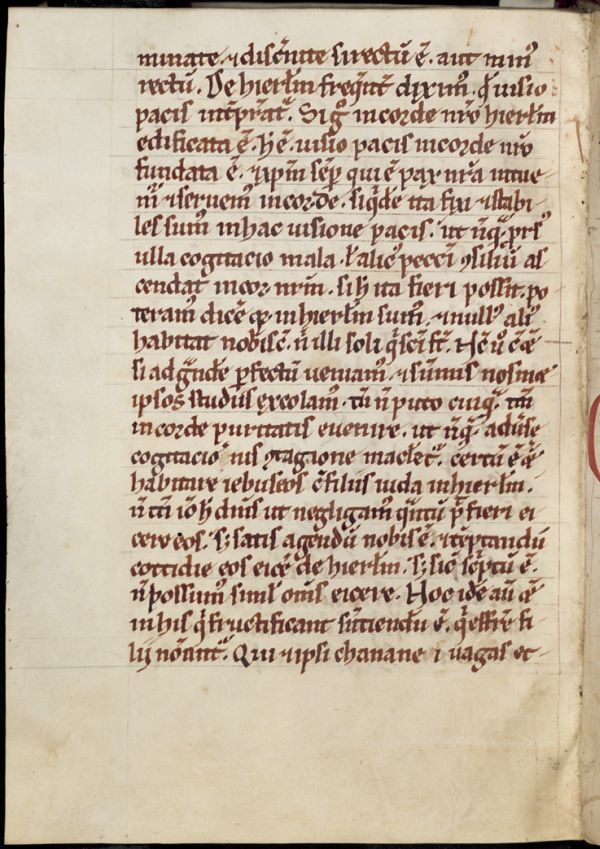 minate· ⁊ discutite si rectū ē· aut minꝰ
rectū. De hierłm frequēt͛ diximꝰ· qͩ uisio
pacis int͛prat᷑. Si gͦ in corde nrō hierłm
edificata ē· h̄ ē· uisio pacis in corde nrō
fundata ē· ⁊ xp̄m sēp qui ē pax nr̄a intue
m᷑ ⁊ seruem᷑ in corde· siqͥdē ita fixi ⁊ stabi
les sumꝰ in hac uisione pacis· ut nūqͣ prsꝰ
ulla cogitacio mala· ł alicꝰ pecci ꝯsiliū as
cendat in cor nrm̄· si h̄ ita fieri possit· po
teramꝰ dicē qꝫ in hierłm sumꝰ· ⁊ nullꝰ aliꝰ
habitat nobiscū· n̄ illi soli qͥ sci st̄·
si ad gͣndē ꝑfectū ueniamꝰ· ⁊ sūmis nosmet
ipsos studiis excolamꝰ· tn̄ n̄ puto cuiqͣ· tm̄
in corde puritatis euenire· ut nūqͣ aduſe
cogitacionis ꝯtagione maclet᷑· certū ē
habitare iebuseos cū filiis iuda in hierłm·
n̄ tn̄ iō h̄ dicimꝰ ut negligamꝰ qͣntū p̄t fieri ei
cere eos· sꝫ satis agendū nobis ē· ⁊ tēptandū
cottidie eos eicē de hierłm· sꝫ sic̄ scͥptū ē·
n̄ possumꝰ simł oms̄ eicere· Hoc idē aū
in his qͥ fructificant sn̄ciendū ē· qͥ effrē fi
lii noīant᷑. Qui ⁊ ipsi chananei uagas et